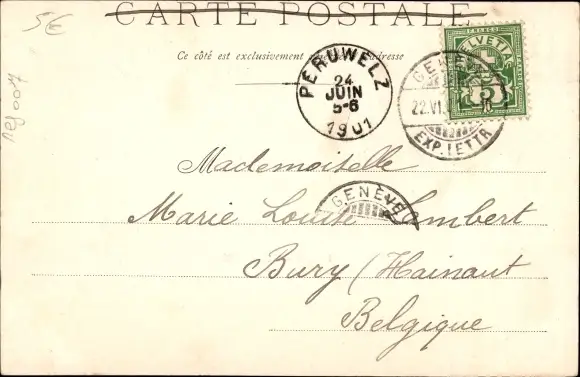 5€
CARTE POSTALE
Ce côté est exclusivement adresse
PERUWELZ
24
JUIN
5-6
1901
GENÈVE
22.VI.
EXP. LETTR
FRANCO
HELVETIA
5
Mademoiselle
GENÈVE
Marie Louise Lambert
Bury (Hainaut
Belgique